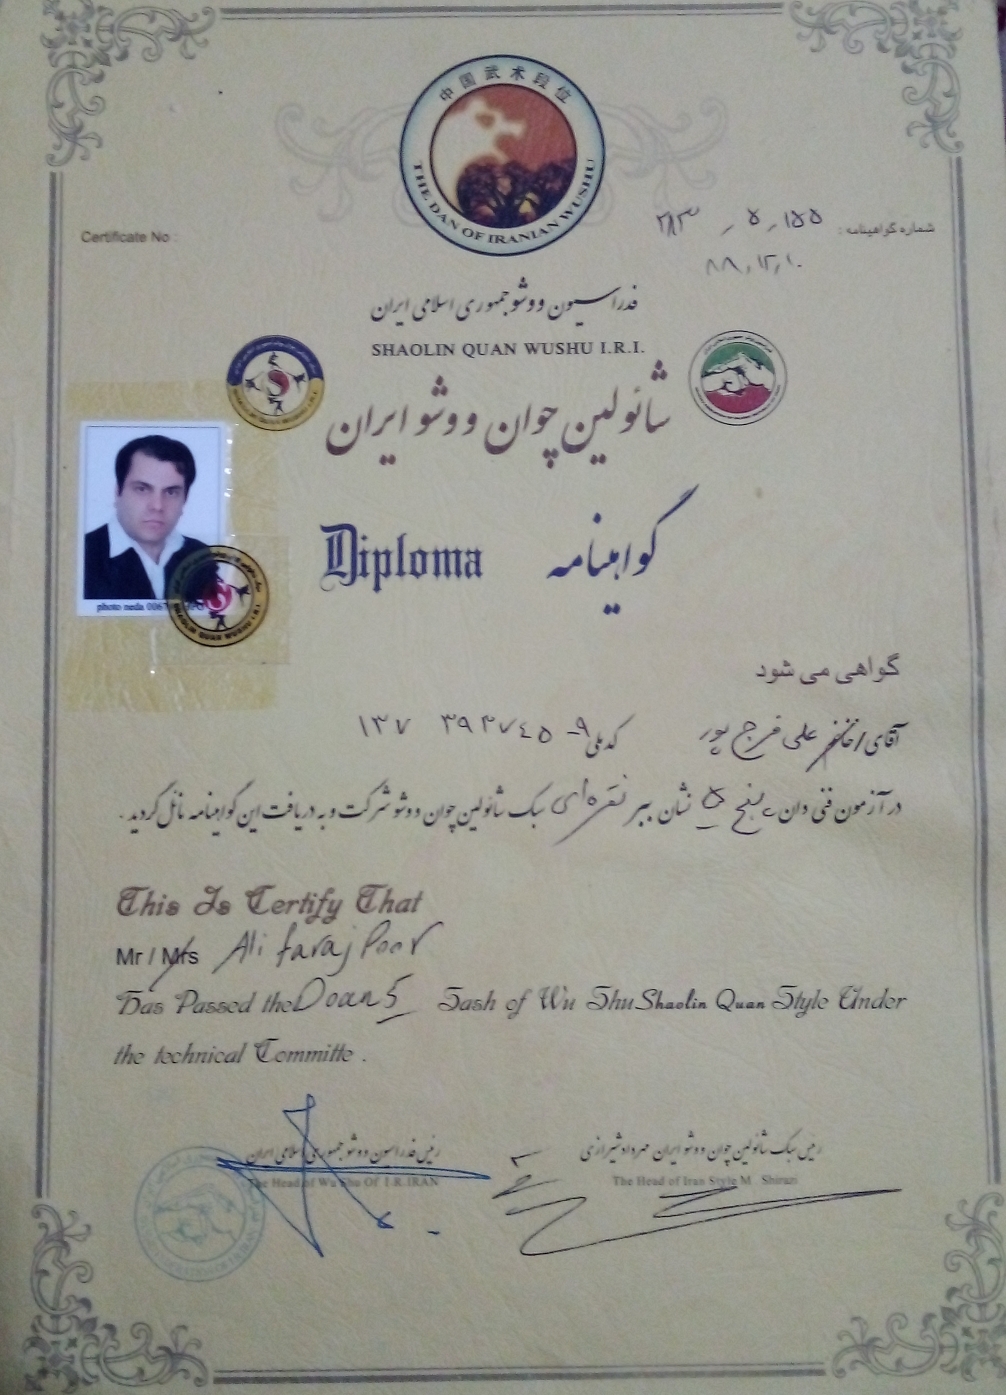 中国武术段位
THE DAN OF IRANIAN WUSHU
Certificate No :
شماره گواهینامه : ۱۵۵ / ۵ /
۸۸,۱۲,۱۰
فدراسیون ووشو جمهوری اسلامی ایران
SHAOLIN QUAN WUSHU I.R.I.
شائولین چوان ووشو ایران
photo neda 006
SHAOLIN QUAN WUSHU I.R.I.
Diploma گواهینامه
گواهی می شود
آقای/خانم علی فرج پور کدملی ۹- ۳۹۳۷۴۵ ۱۳۷
در آزمون فنی دان پنج ۵ نشان ببر نقره‌ای سبک شائولین چوان ووشو شرکت و به دریافت این گواهینامه نائل گردید .
This Is Certify That
Mr / Mrs Ali faraj Poor
Has Passed the Doan 5 Sash of Wu Shu Shaolin Quan Style Under
the technical Committe .
رئیس سبک شائولین چوان ووشو ایران مهرداد شیرازی
The Head of Iran Style M Shirazi
رئیس فدراسیون ووشو جمهوری اسلامی ایران
The Head of Wu Shu Of I.R.IRAN